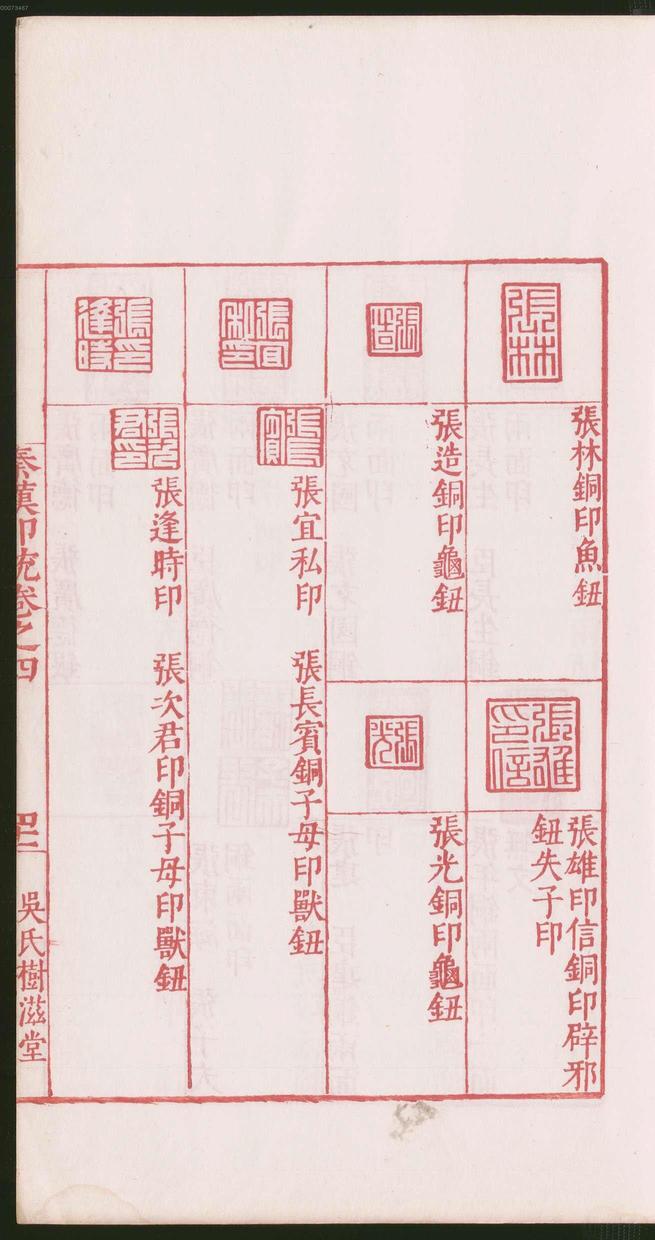 00073467
張林
張林銅印魚鈕
張雄印信
張雄印信銅印辟邪
鈕失子印
張造
張造銅印龜鈕
張光
張光銅印龜鈕
張宜私印
張長賓
張宜私印　張長賓銅子母印獸鈕
張逢時印
張次君印
張逢時印　張次君印銅子母印獸鈕
秦漢印統卷之四
吳氏樹滋堂